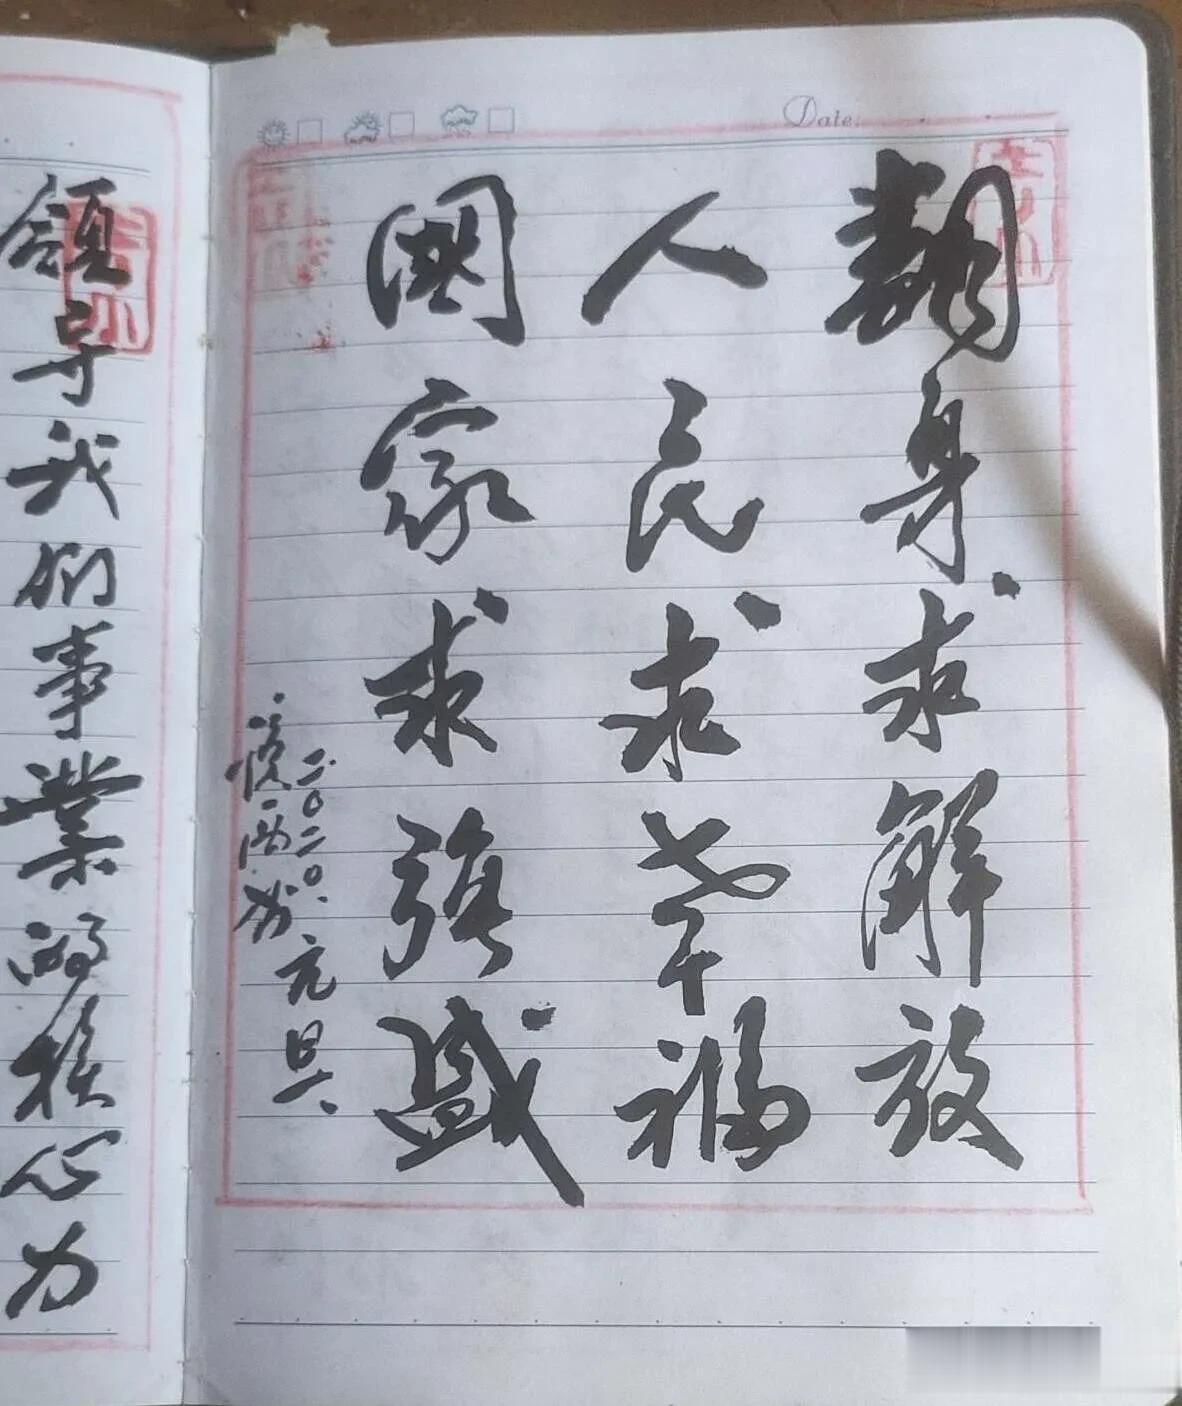 Date.
翻身求解放
人民求幸福
國家求强盛
二〇二〇.元旦
領导我们事業的核心力